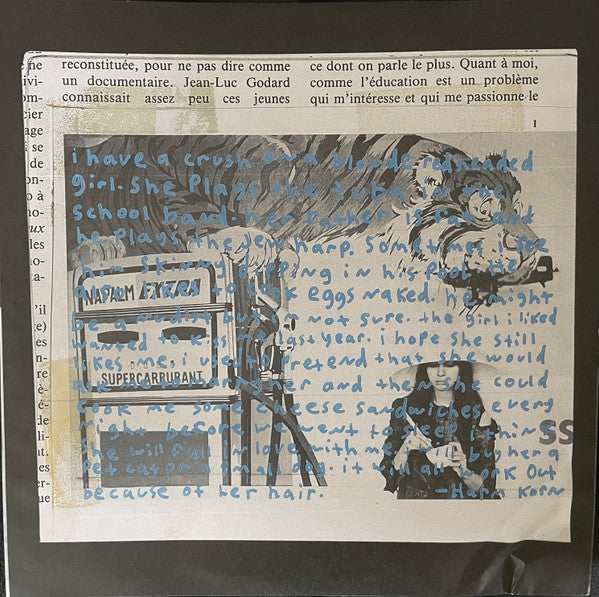 reconstituée, pour ne pas dire comme
un documentaire. Jean-Luc Godard
connaissait assez peu ces jeunes
ce dont on parle le plus. Quant à moi,
comme l'éducation est un problème
qui m'intéresse et qui me passionne le
1
ne
ivi-
om-
cier
age
se
de
on-
o à
no-
eux
les
no-
ta-
'il
re)
es
n-
re
é-
e-
de
li-
t.
es
er
ue
i have a crush on a blonde redheaded
girl. She Plays the tuba in the
school band. her father is fat and
he Plays the Jew harp. Sometimes i see
him Skinny dipping in his Pool. He
also likes to cook eggs naked. he might
be a nudist but i'm not sure. the girl i liked
wanted to kiss me last year. i hope She still
likes me. i used to pretend that she would
ask me to marry her and then she could
cook me some cheese sandwiches every
night before we went to sleep. i think
She will fall in love with me. i'll buy her a
Pet cat or a small dog. it will all work out
because of her hair.
-Harm Korn
NAPALM EXTRA
SUPERCARBURANT
SS